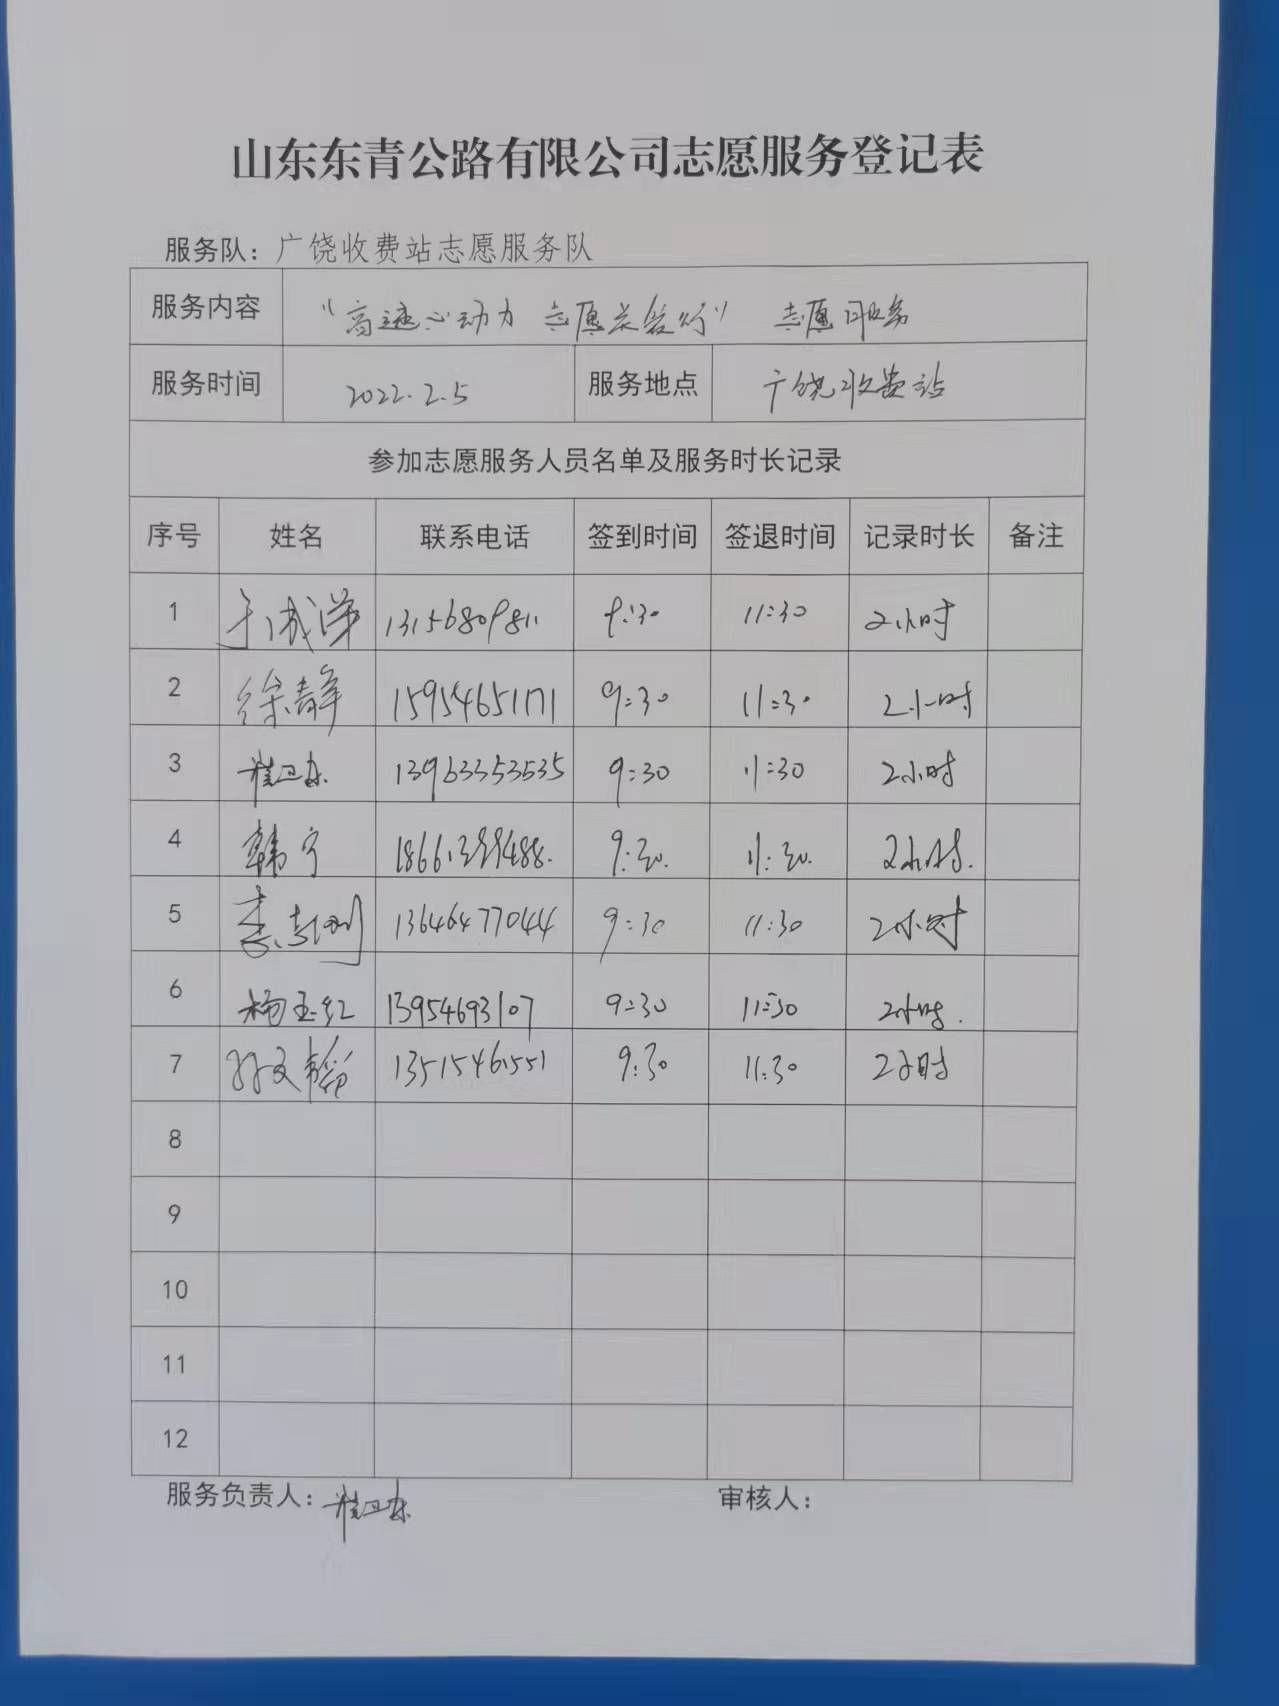 山东东青公路有限公司志愿服务登记表
服务队：广饶收费站志愿服务队
服务内容 “高速心动力 志愿关爱行” 志愿服务
服务时间 2022.2.5 服务地点 广饶收费站
参加志愿服务人员名单及服务时长记录
序号 姓名 联系电话 签到时间 签退时间 记录时长 备注
1 9:30 11:30 2小时
2 徐静 15954651171 9:30 11:30 2小时
3 崔卫东 13963353535 9:30 11:30 2小时
4 韩宁 9:30. 11:30. 2小时.
5 13646477044 9:30 11:30 2小时
6 杨玉红 13954693107 9:30 11:30 2小时.
7 孙文韬 13515461551 9:30 11:30 2小时
8
9
10
11
12
服务负责人：崔卫东 审核人：